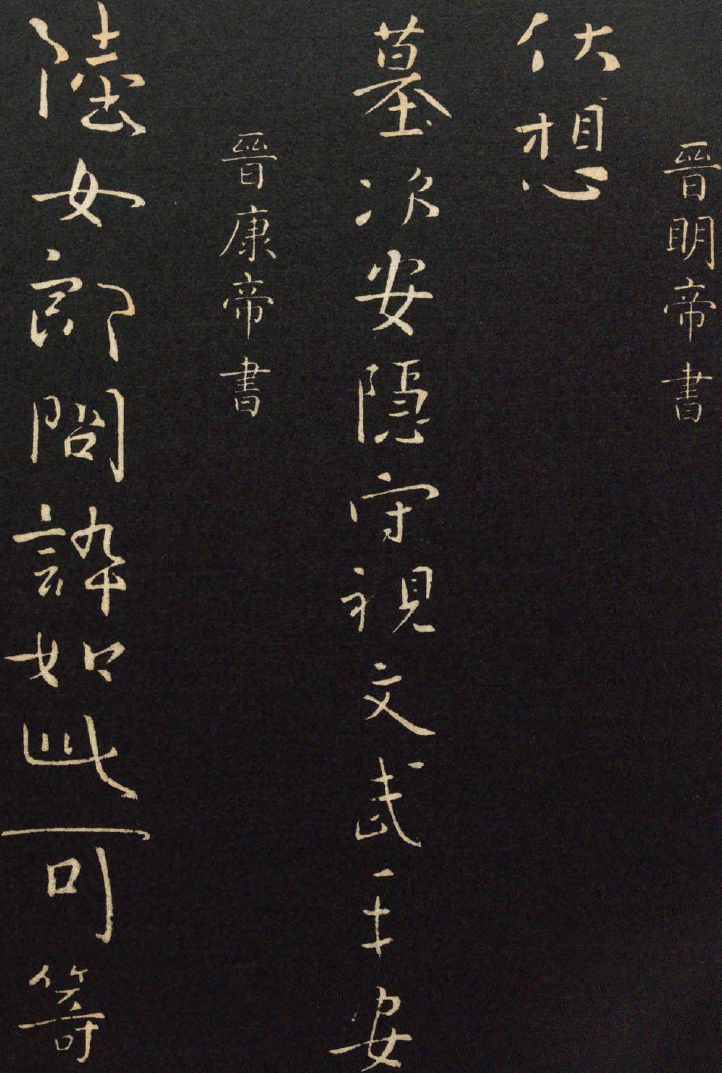 晉明帝書
伏想
墓次安隱守視文武平安
晉康帝書
陸女郎閤誶如此可